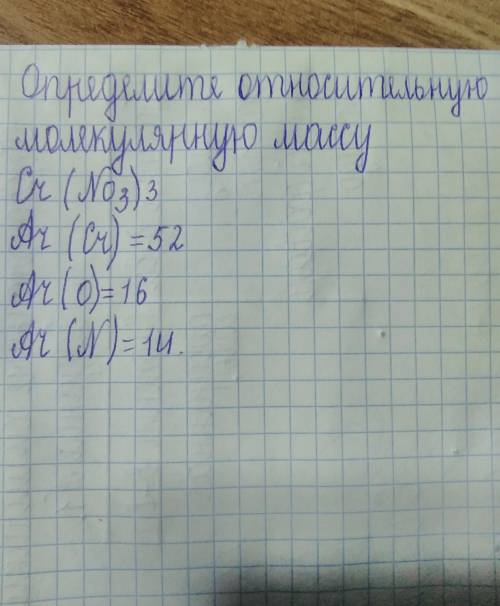 Определите относительную
молекулярную массу
Cr (NO3)3
Ar (Cr) = 52
Ar (O) = 16
Ar (N) = 14.